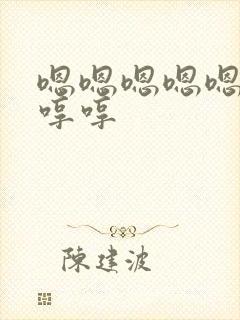 嗯嗯嗯嗯嗯
哼哼
陈建波